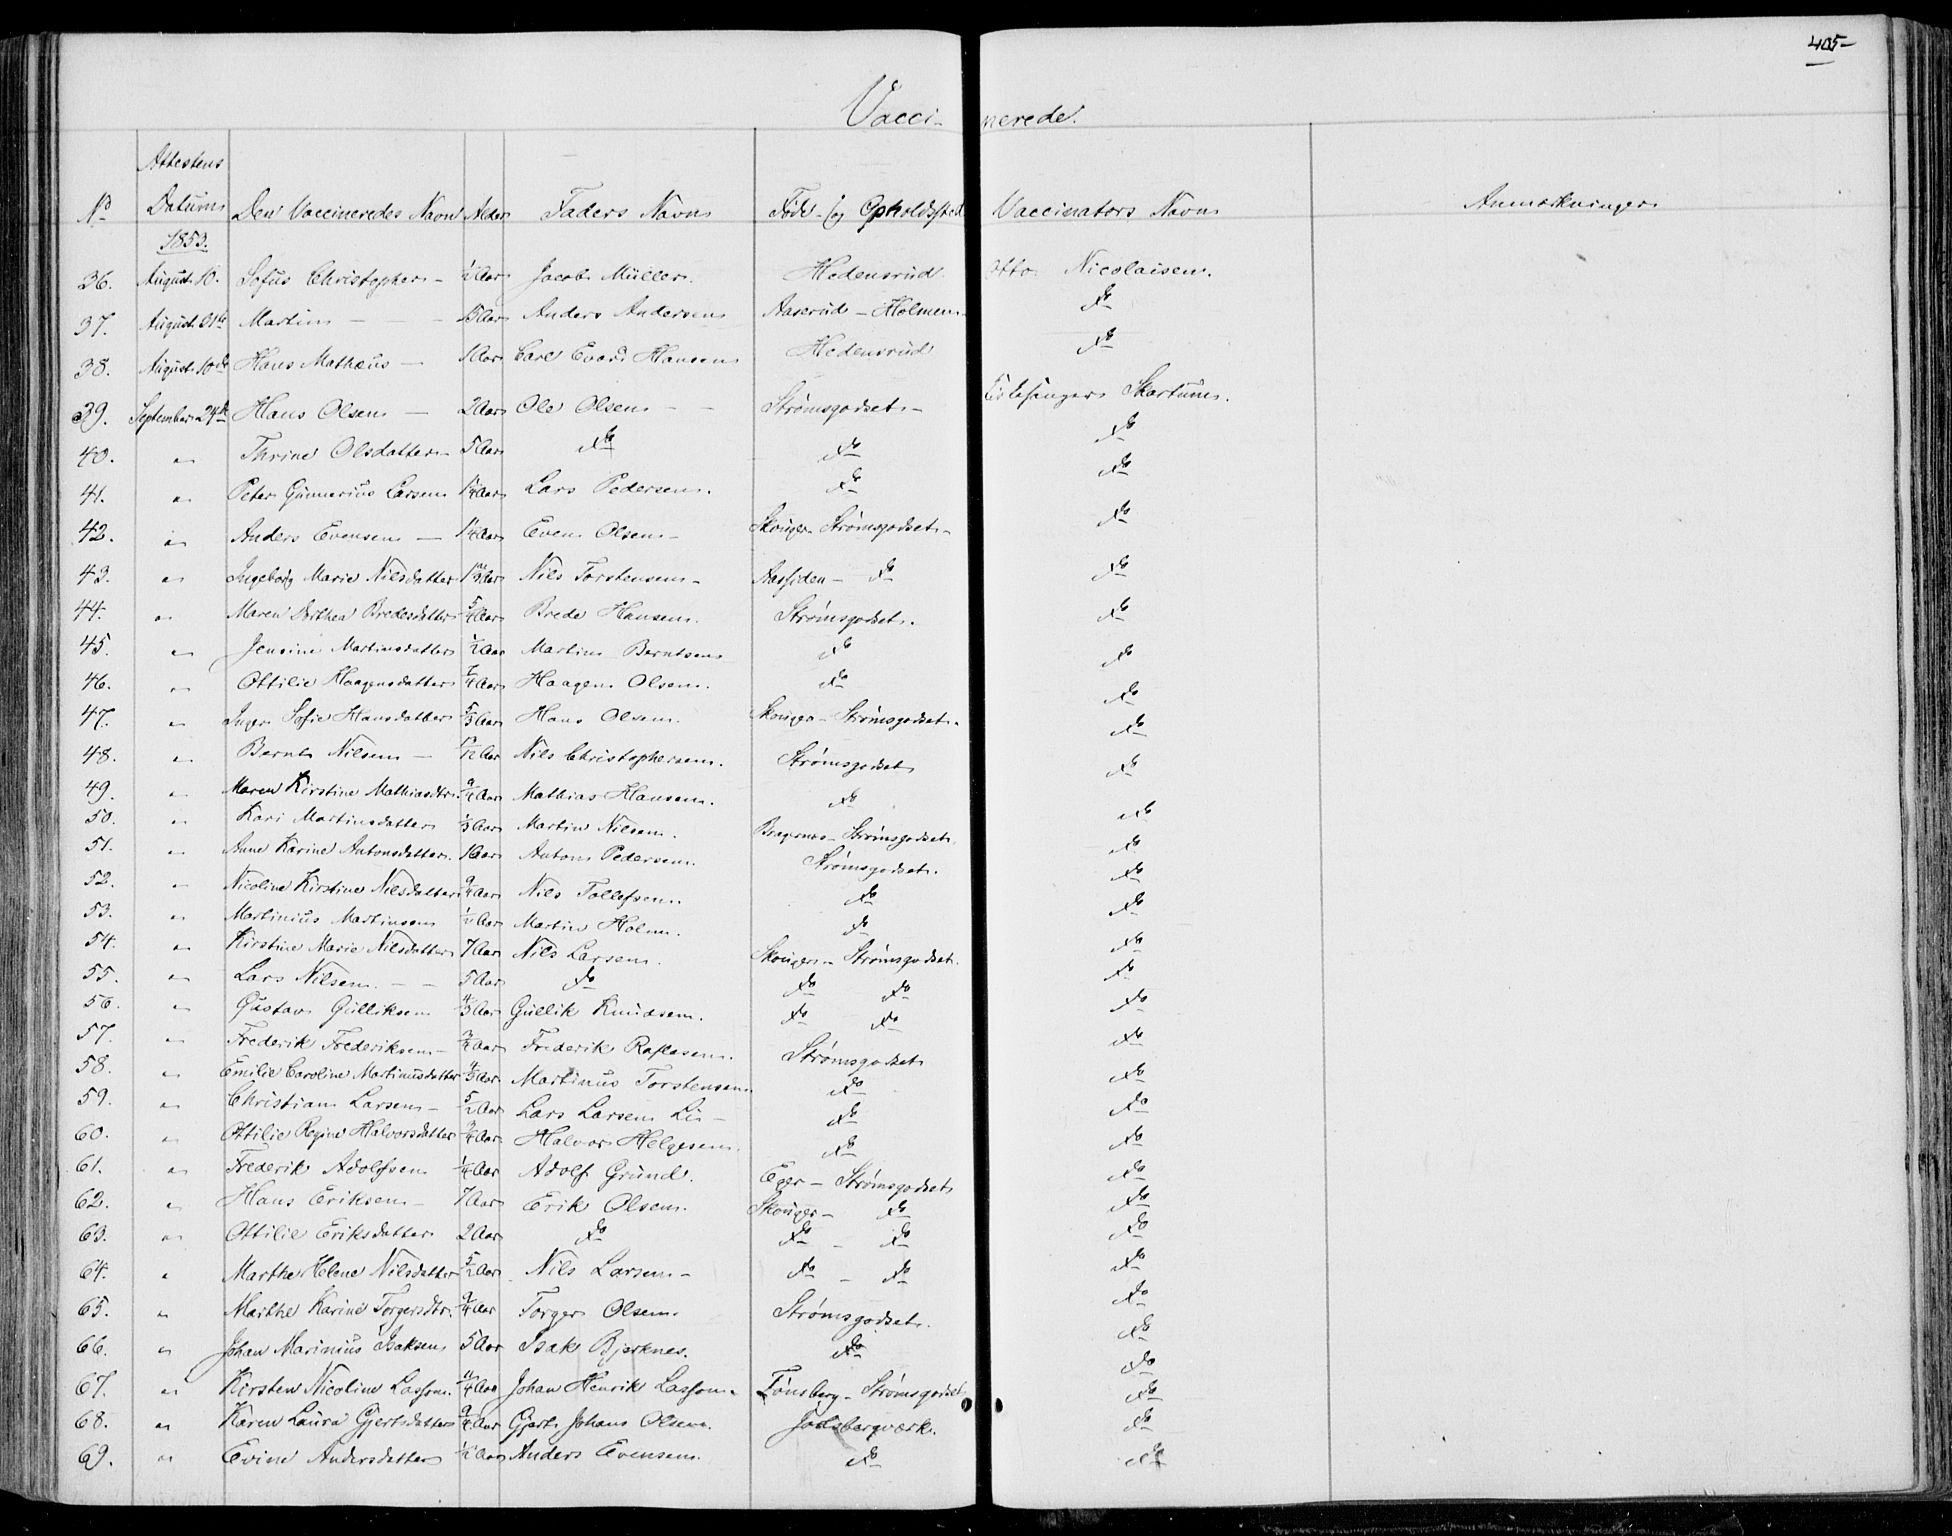 405
Vaccinerede.
No Attestens Datum Den Vaccineredes Navn Alder Faders Navn Føde- og Opholdssted Vaccinators Navn Anmærkninger
1853.
36. August 10. Sofus Christopher - 1/2 Aar Jacob Müller. Hedensrud. Otto Nicolaisen.
37. August 31te Martin - Aar Anders Andersen Aaserud - Holmen do
38. August 10de Hans Mathæus - 1 Aar Carl Hansen Hedensrud do
39. September 24de Hans Olsen - 2 Aar Ole Olsen - - Strømsgodset - Kirkesanger Skartum.
40. " Thrine Olsdatter - 5 Aar do do do
41. " Peter Gunnerius Larsen 1 1/4 Aar Lars Pedersen. do do
42. " Anders Evensen - 1 1/4 Aar Even Olsen - Skouger - Strømsgodset - do
43. " Ingeborg Marie Nilsdatter Aar Nils Torstensen - Aassiden - do do
44. " Maren Dorthea Bredesdatter 5/4 Aar Brede Hansen. Strømsgodset. do
45. " Jensine Martinsdatter 1/2 Aar Martin Berntsen do do
46. " Ottilie Haagensdatter 7/4 Aar Haagen Olsen. do do
47. " Inger Sofie Hansdatter 5/3 Aar Hans Olsen. Skouger - Strømsgodset. do
48. " Bernt Nilsen - Aar Nils Christophersen. Strømsgodset do
49. " Maren Kirstine Mathiasdtr. 9/4 Aar Mathias Hansen. do do
50. " Kari Martinsdatter 1/3 Aar Martin Nilsen. Bragernes - Strømsgodset. do
51. " Anne Karine Antonsdatter. Aar Anton Pedersen. Strømsgodset. do
52. " Nicoline Kirstine Nilsdatter 9/4 Aar Nils Tollefsen. do do
53. " Martinius Martinsen 1/2 Aar Martin Holm. do do
54. " Kirstine Marie Nilsdatter 7 Aar Nils Larsen. Skouger - Strømsgodset. do
55. " Lars Nilsen. - - 5 Aar do do do do
56. " Gustav Gulliksen 4/3 Aar Gullik Knudsen. do do do
57. " Frederik Frederiksen - 3/4 Aar Frederik Strømsgodset do
58. " Emilie Caroline Martinusdatter 4/3 Aar Martinus Torstensen do do
59. " Christian Larsen - 5/2 Aar Lars Larsen Li - do do
60. " Ottilie Regine Halvorsdatter 3/4 Aar Halvor Helgesen. do do
61. " Frederik Adolfsen 1/4 Aar Adolf Grund. Eger - Strømsgodset do
62. " Hans Eriksen - 7 Aar Erik Olsen. Skouger - do do
63. " Ottilie Eriksdatter 2 Aar do do - do do
64. " Marthe Helene Nilsdatter 5/2 Aar Nils Larsen - do - do do
65. " Marthe Karine Torgersdtr. 9/4 Aar Torger Olsen. Strømsgodset. do
66. " Johan Marinius Isaksen 5 Aar Isak Bjerknes. do do
67. " Kirsten Nicoline Lasson. Aar Johan Henrik Lasson - Tønsberg - Strømsgodset do
68. " Karen Laura Gjertsdatter 9/4 Aar Gjert Johans Olsen. Jarlsbergværk. do
69. " Evine Andersdatter 1/2 Aar Anders Evensen. do do